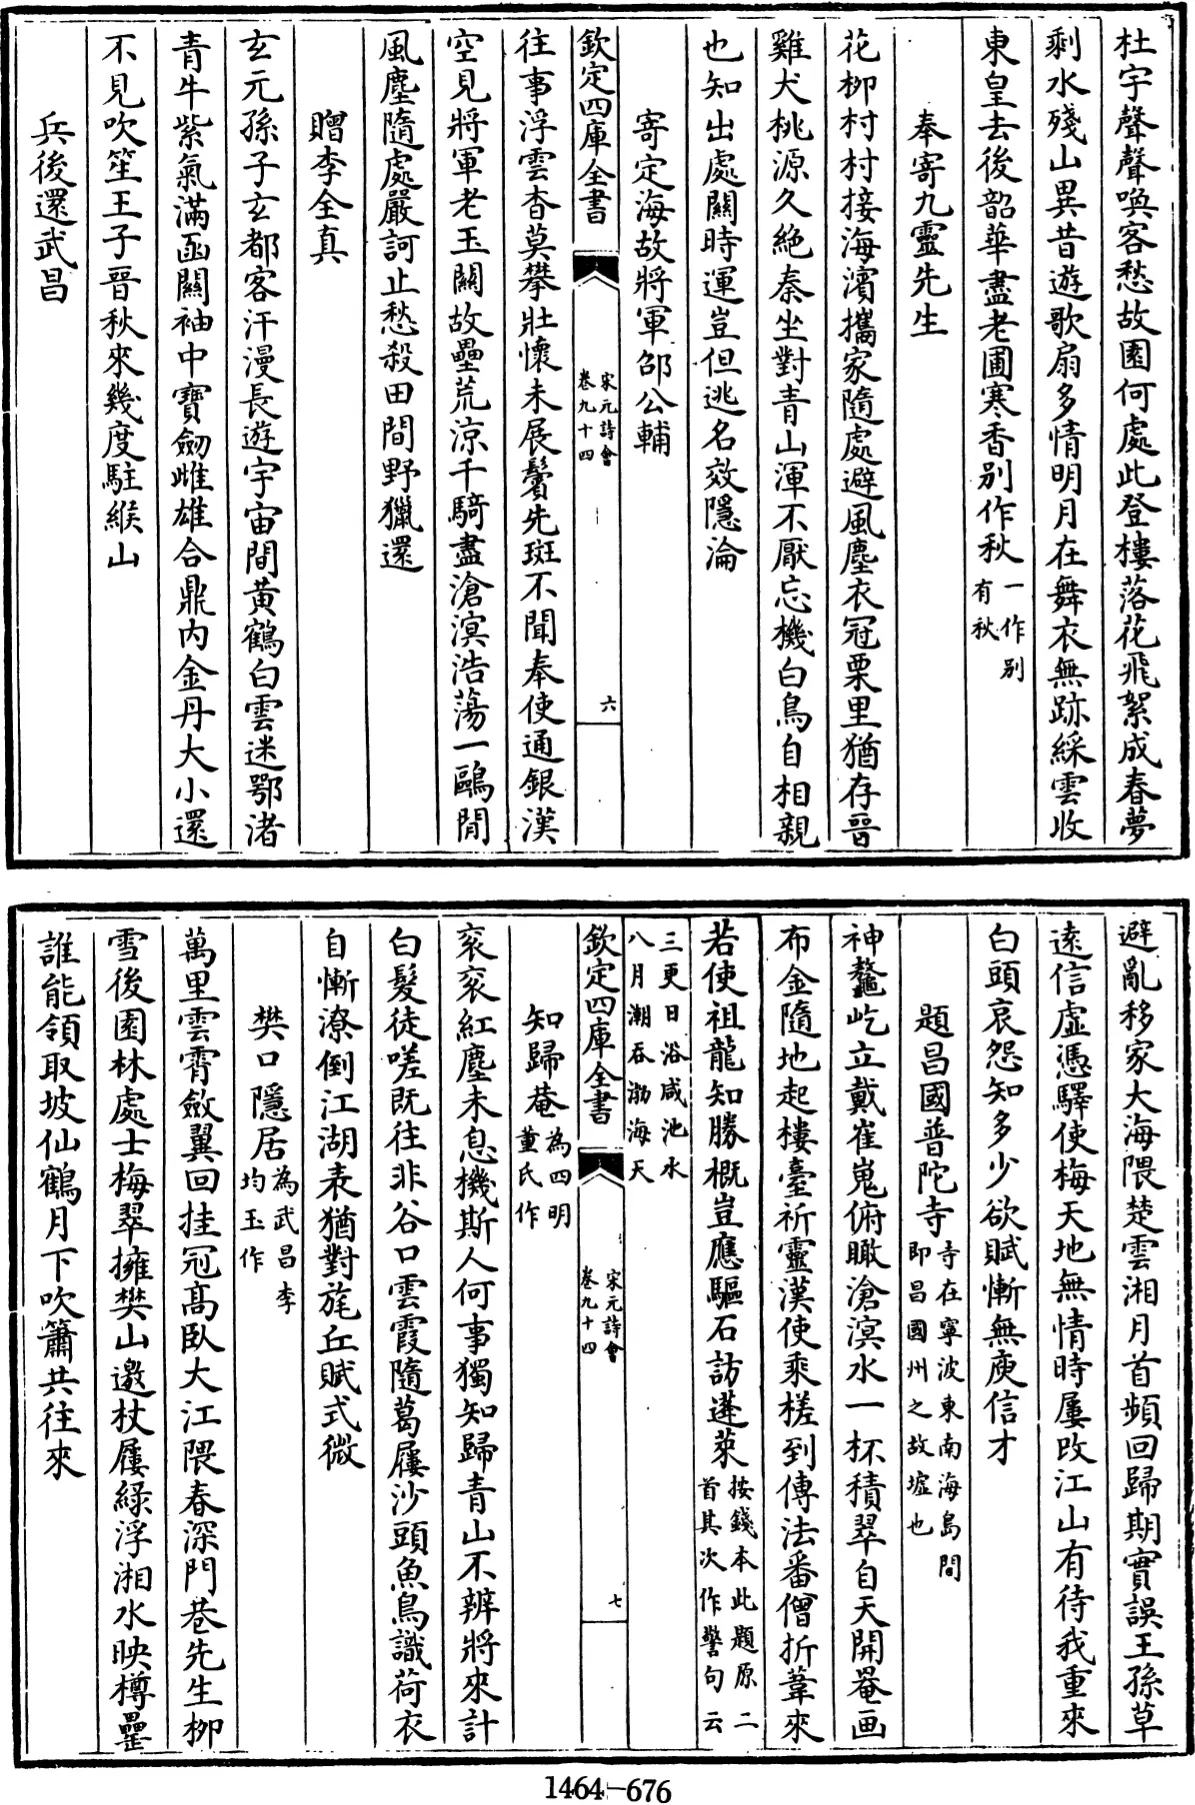 杜宇聲聲喚客愁故園何處此登樓落花飛絮成春夢
剩水殘山異昔遊歌扇多情明月在舞衣無跡綵雲收
東皇去後韶華盡老圃寒香别作秋一作别有秋
奉寄九靈先生
花柳村村接海濱攜家隨處避風塵衣冠栗里猶存晉
雞犬桃源久絶秦坐對青山渾不厭忘機白鳥自相親
也知出處關時運豈但逃名效隱淪
寄定海故將軍邵公輔
欽定四庫全書
宋元詩會
卷九十四
六
往事浮雲杳莫攀壯懷未展鬢先斑不聞奉使通銀漢
空見將軍老玉關故壘荒涼千騎盡滄溟浩蕩一鷗閒
風塵隨處嚴訶止愁殺田間野獵還
贈李全真
玄元孫子玄都客汗漫長遊宇宙間黄鶴白雲迷鄂渚
青牛紫氣滿函關袖中寶劒雌雄合鼎内金丹大小還
不見吹笙王子晉秋來幾度駐緱山
兵後還武昌
避亂移家大海隈楚雲湘月首頻回歸期實誤王孫草
遠信虚憑驛使梅天地無情時屢改江山有待我重來
白頭哀怨知多少欲賦慚無庾信才
題昌國普陀寺寺在寧波東南海島間即昌國州之故墟也
神鼇屹立戴崔嵬俯瞰滄溟水一杯積翠自天開罨画
布金隨地起樓臺祈靈漢使乘槎到傳法番僧折葦來
若使祖龍知勝概豈應驅石訪蓬萊按錢本此題原二首其次作警句云
三更日浴咸池水
八月潮吞渤海天
欽定四庫全書
宋元詩會
卷九十四
七
知歸菴為四明董氏作
衮衮紅塵未息機斯人何事獨知歸青山不辨將來計
白髮徒嗟既往非谷口雲霞隨葛屨沙頭魚鳥識荷衣
自慚潦倒江湖表猶對旄丘賦式微
樊口隱居為武昌李均玉作
萬里雲霄斂翼回挂冠高臥大江隈春深門巷先生柳
雪後園林處士梅翠擁樊山邀杖屨綠浮湘水映樽罍
誰能領取坡仙鶴月下吹簫共往來
1464-676